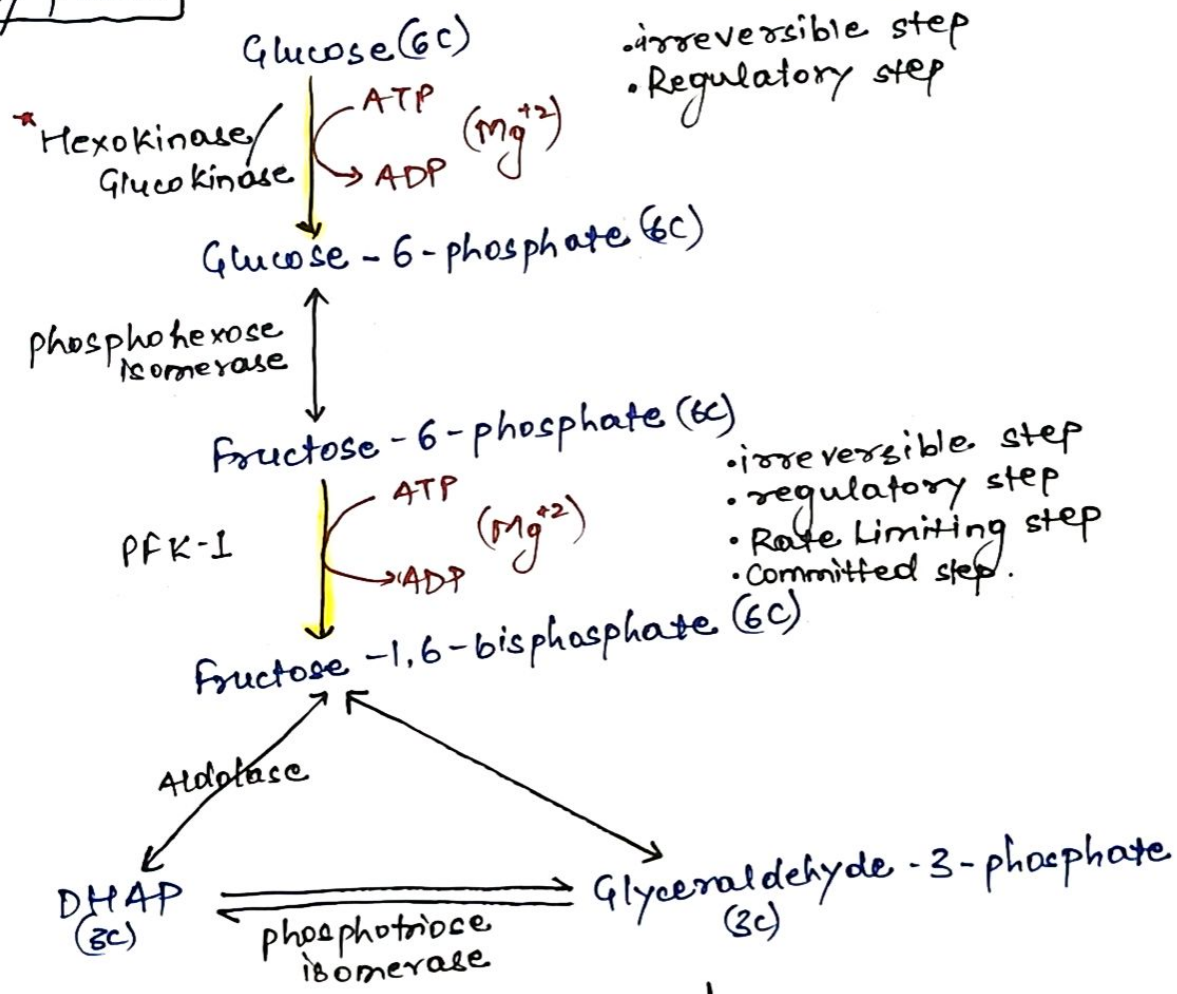 Glucose (6C)
•irreversible step
•Regulatory step
*Hexokinase/
Glucokinase
ATP
(Mg+2)
ADP
Glucose - 6 - phosphate (6C)
phosphohexose
isomerase
Fructose - 6 - phosphate (6C)
•irreversible step
•regulatory step
•Rate Limiting step
•Committed step.
PFK-1
ATP
(Mg+2)
ADP
Fructose -1,6-bisphosphate (6C)
Aldolase
DHAP
(3C)
phosphotriose
isomerase
Glyceraldehyde - 3 - phosphate
(3C)